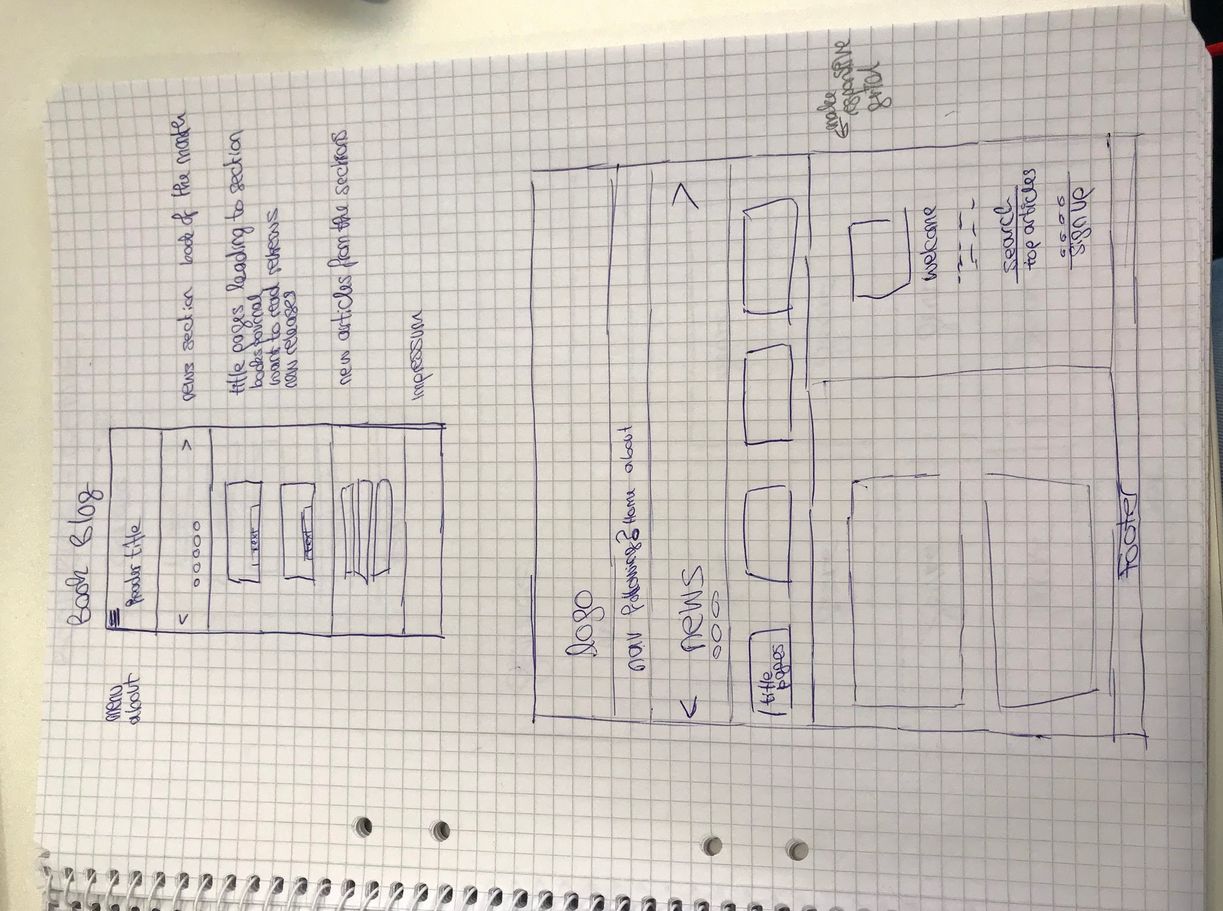 Book Blog
menu
about
Header title
< >
news section book of the month
title pages leading to section
books journal
want to read reviews
new releases
TEXT
TEXT
new articles from the sections
Impressum
Logo
nav Following? Home about
< news >
title
pages
← make
responsive
grid
welcome
search
top articles
sign up
Footer